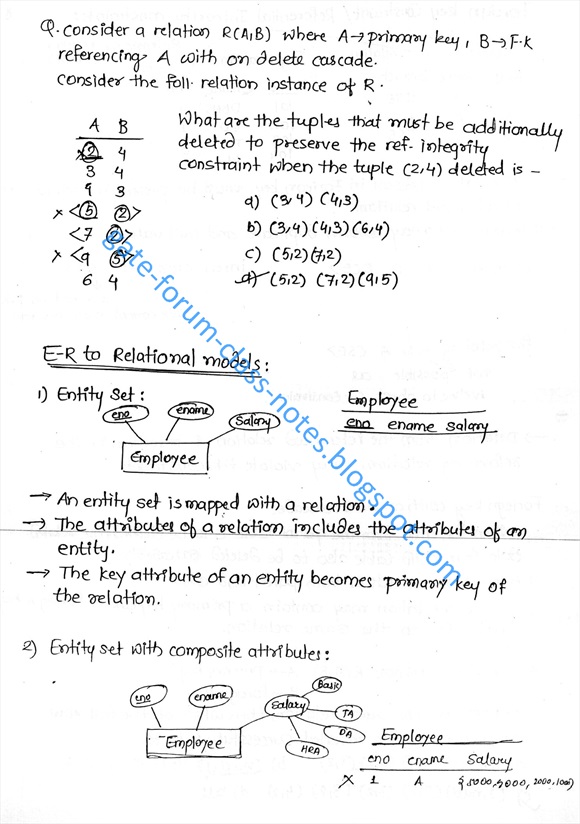 Q. consider a relation R(A,B) where A→primary key, B→F.K
referencing A with on delete cascade.
consider the foll. relation instance of R.
A B
x 2 4
3 4
9 3
x <5 2>
<7 2>
x <9 5>
6 4
What are the tuples that must be additionally
deleted to preserve the ref. integrity
constraint when the tuple (2,4) deleted is -
a) (3,4) (4,3)
b) (3,4) (4,3) (6,4)
c) (5,2) (7,2)
d) (5,2) (7,2) (9,5)
gate-forum-class-notes.blogspot.com
E-R to Relational models:
1) Entity Set:
eno ename Salary
Employee
Employee
eno ename salary
→ An entity set is mapped with a relation.
→ The attributes of a relation includes the attributes of an
entity.
→ The key attribute of an entity becomes primary key of
the relation.
2) Entity set with composite attributes:
eno ename Salary Basic TA DA HRA
Employee
Employee
eno ename Salary
x 1 A